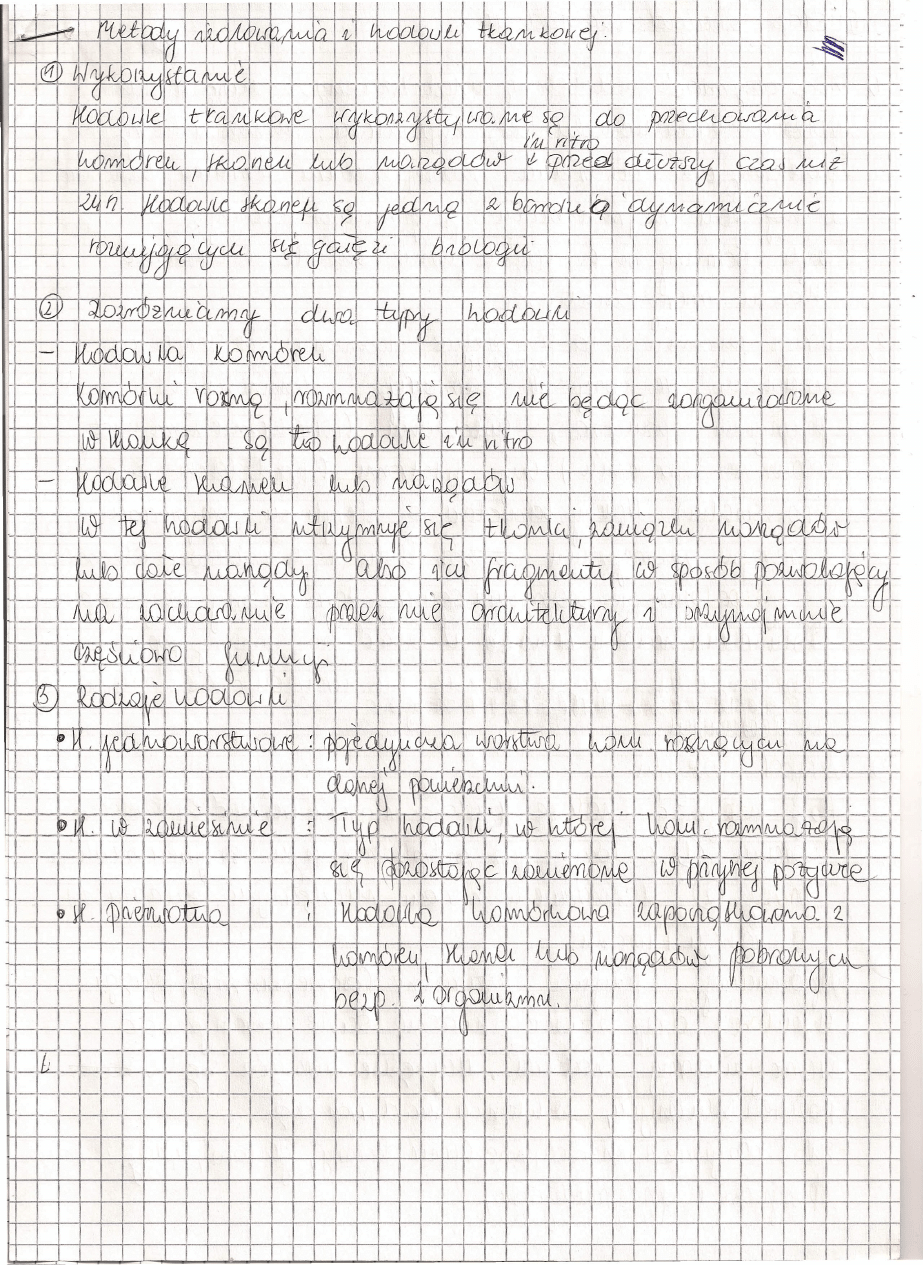 — Metody izolowania i hodowli tkankowej.
① Wykorzystanie
Hodowle tkankowe wykorzystywane są do przechowania
komórek, tkanek lub narządów in vitro przez dłuższy czas niż
24h. Hodowle tkanek są jedną z bardziej dynamicznie
rozwijających się gałęzi biologii
② Rozróżniamy dwa typy hodowli
- Hodowla komórek
Komórki rosną, rozmnażają się nie będąc zorganizowane
w tkankę. Są to hodowle in vitro
- Hodowle tkanek lub narządów
W tej hodowli utrzymuje się tkanki, zawiązki narządów
lub całe narządy albo ich fragmenty w sposób pozwalający
na zachowanie przez nie architektury i przynajmniej
częściowo funkcji
③ Rodzaje hodowli
• H. jednowarstwowe : pojedyncza warstwa kom rosnących na
danej powierzchni.
• H. w zawiesinie : Typ hodowli, w której kom. rozmnażają
się pozostając zawieszone w płynnej pożywce
• H. pierwotna : Hodowla komórkowa zapoczątkowana z
komórek, tkanek lub narządów pobranych
bezp. z organizmu.